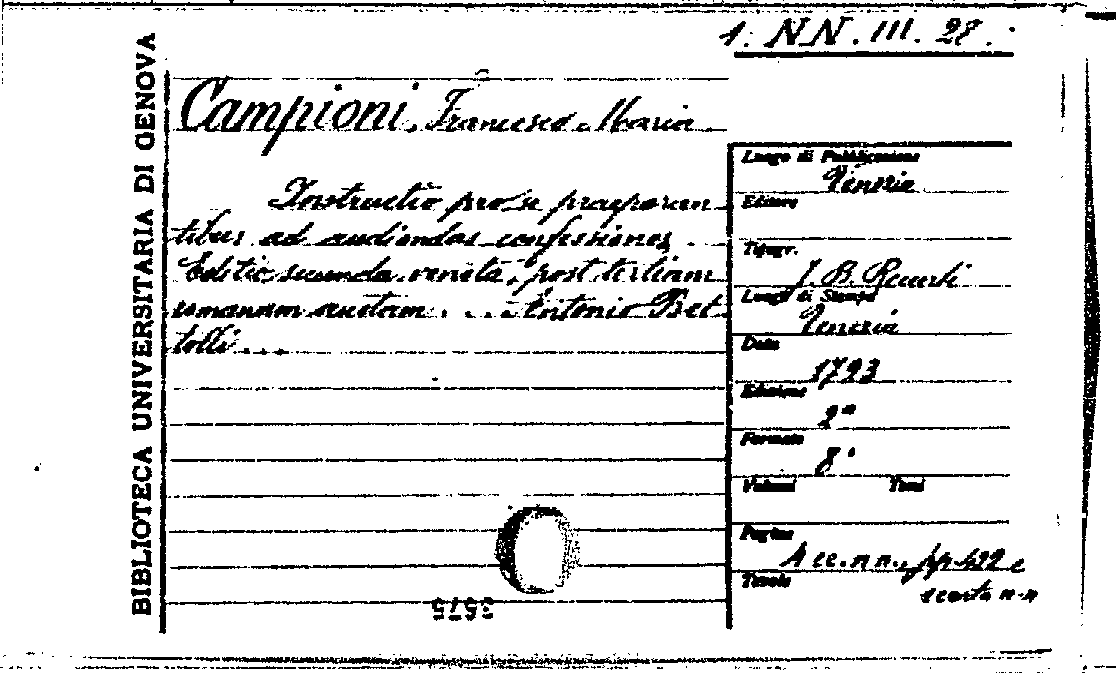 1. NN. III. 28.
BIBLIOTECA UNIVERSITARIA DI GENOVA
Campioni, Francesco Maria
Instructio pro se praeparan
tibus ad audiendas confessiones
Editio secunda veneta, post tertiam
romanam auctam . . . Antonio Bet
tolli . . .
Luogo di Pubblicazione
Venezia
Editore
Tipogr.
J. B.
Luogo di Stampa
Venezia
Data
1793
Edizione
2ª
Formato
8°
Volumi Tomi
Pagine
4 cc. n n., pp. 432 e
Tavole
1 carta n-n
3575